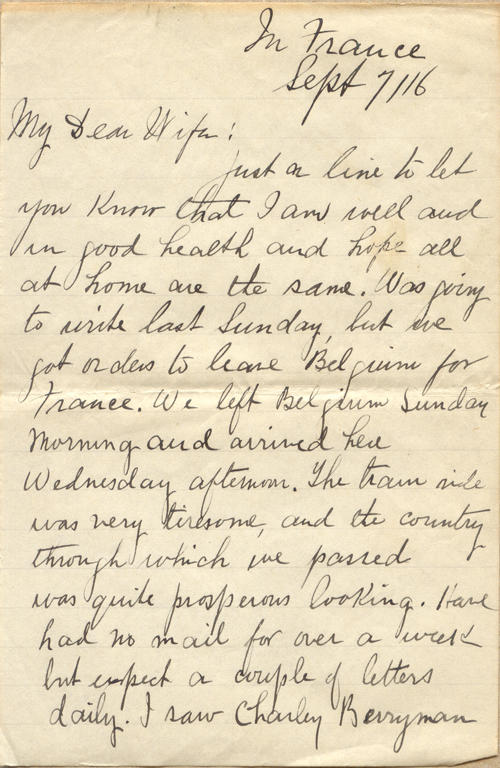 In France
Sept 7/16
My Dear Wife:
Just a line to let
you know that I am well and
in good health and hope all
at home are the same. Was going
to write last Sunday, but we
got orders to leave Belgium for
France. We left Belgium Sunday
Morning and arrived here
Wednesday afternoon. The train ride
was very tiresome, and the country
through which we passed
was quite prosperous looking. Have
had no mail for over a week
but expect a couple of letters
daily. I saw Charley Berryman